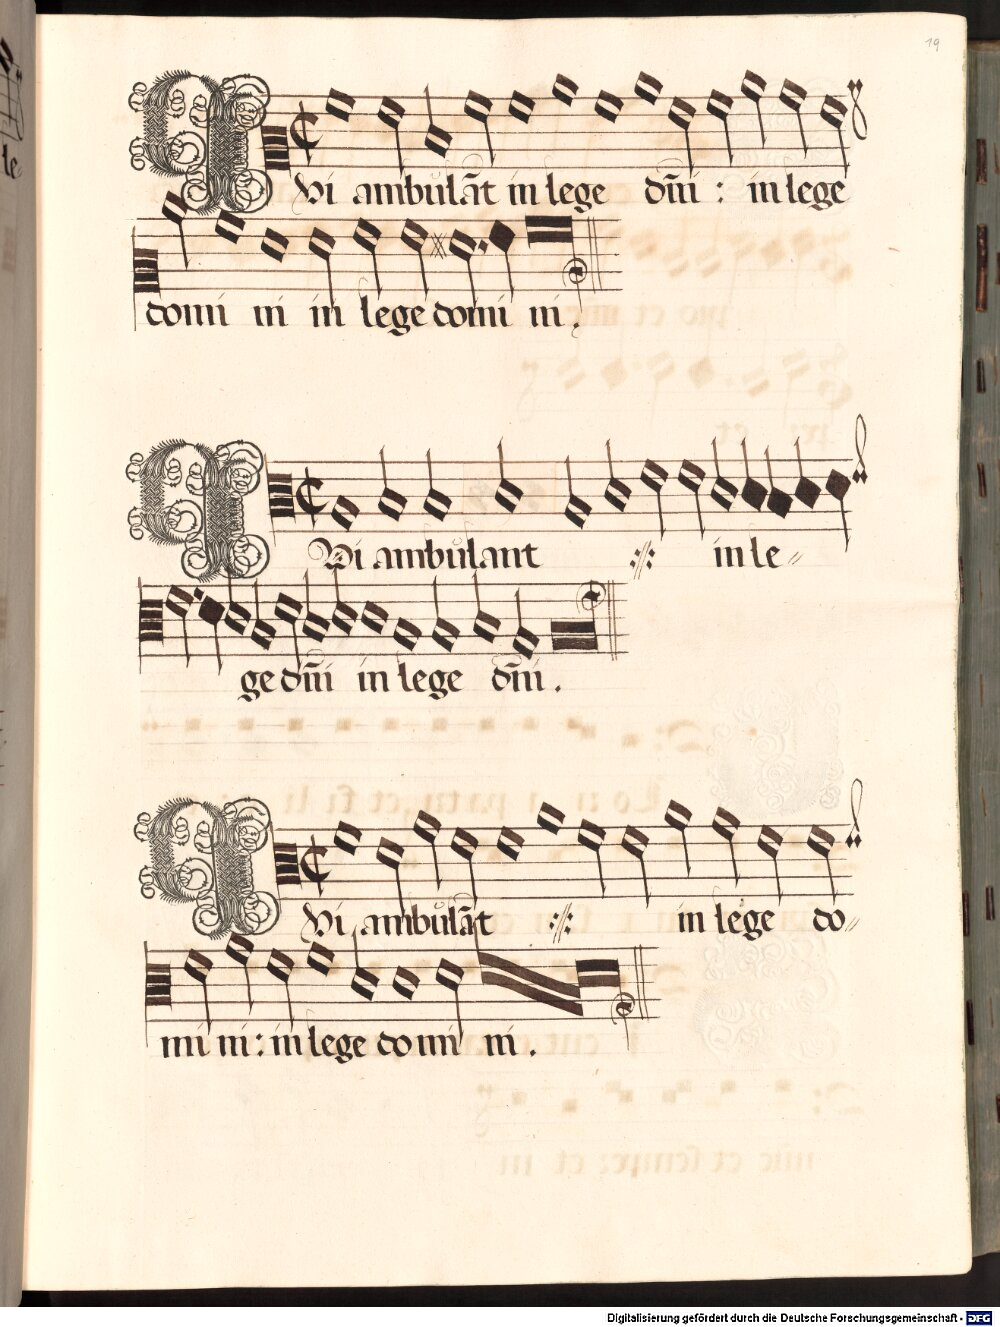 19
Qui ambulāt in lege dñi : in lege
domi ni in lege domi ni .
Qui ambulant in le
ge dñi in lege dñi .
Qui ambulāt in lege do
mi ni : in lege domi ni .
Digitalisierung gefördert durch die Deutsche Forschungsgemeinschaft - DFG